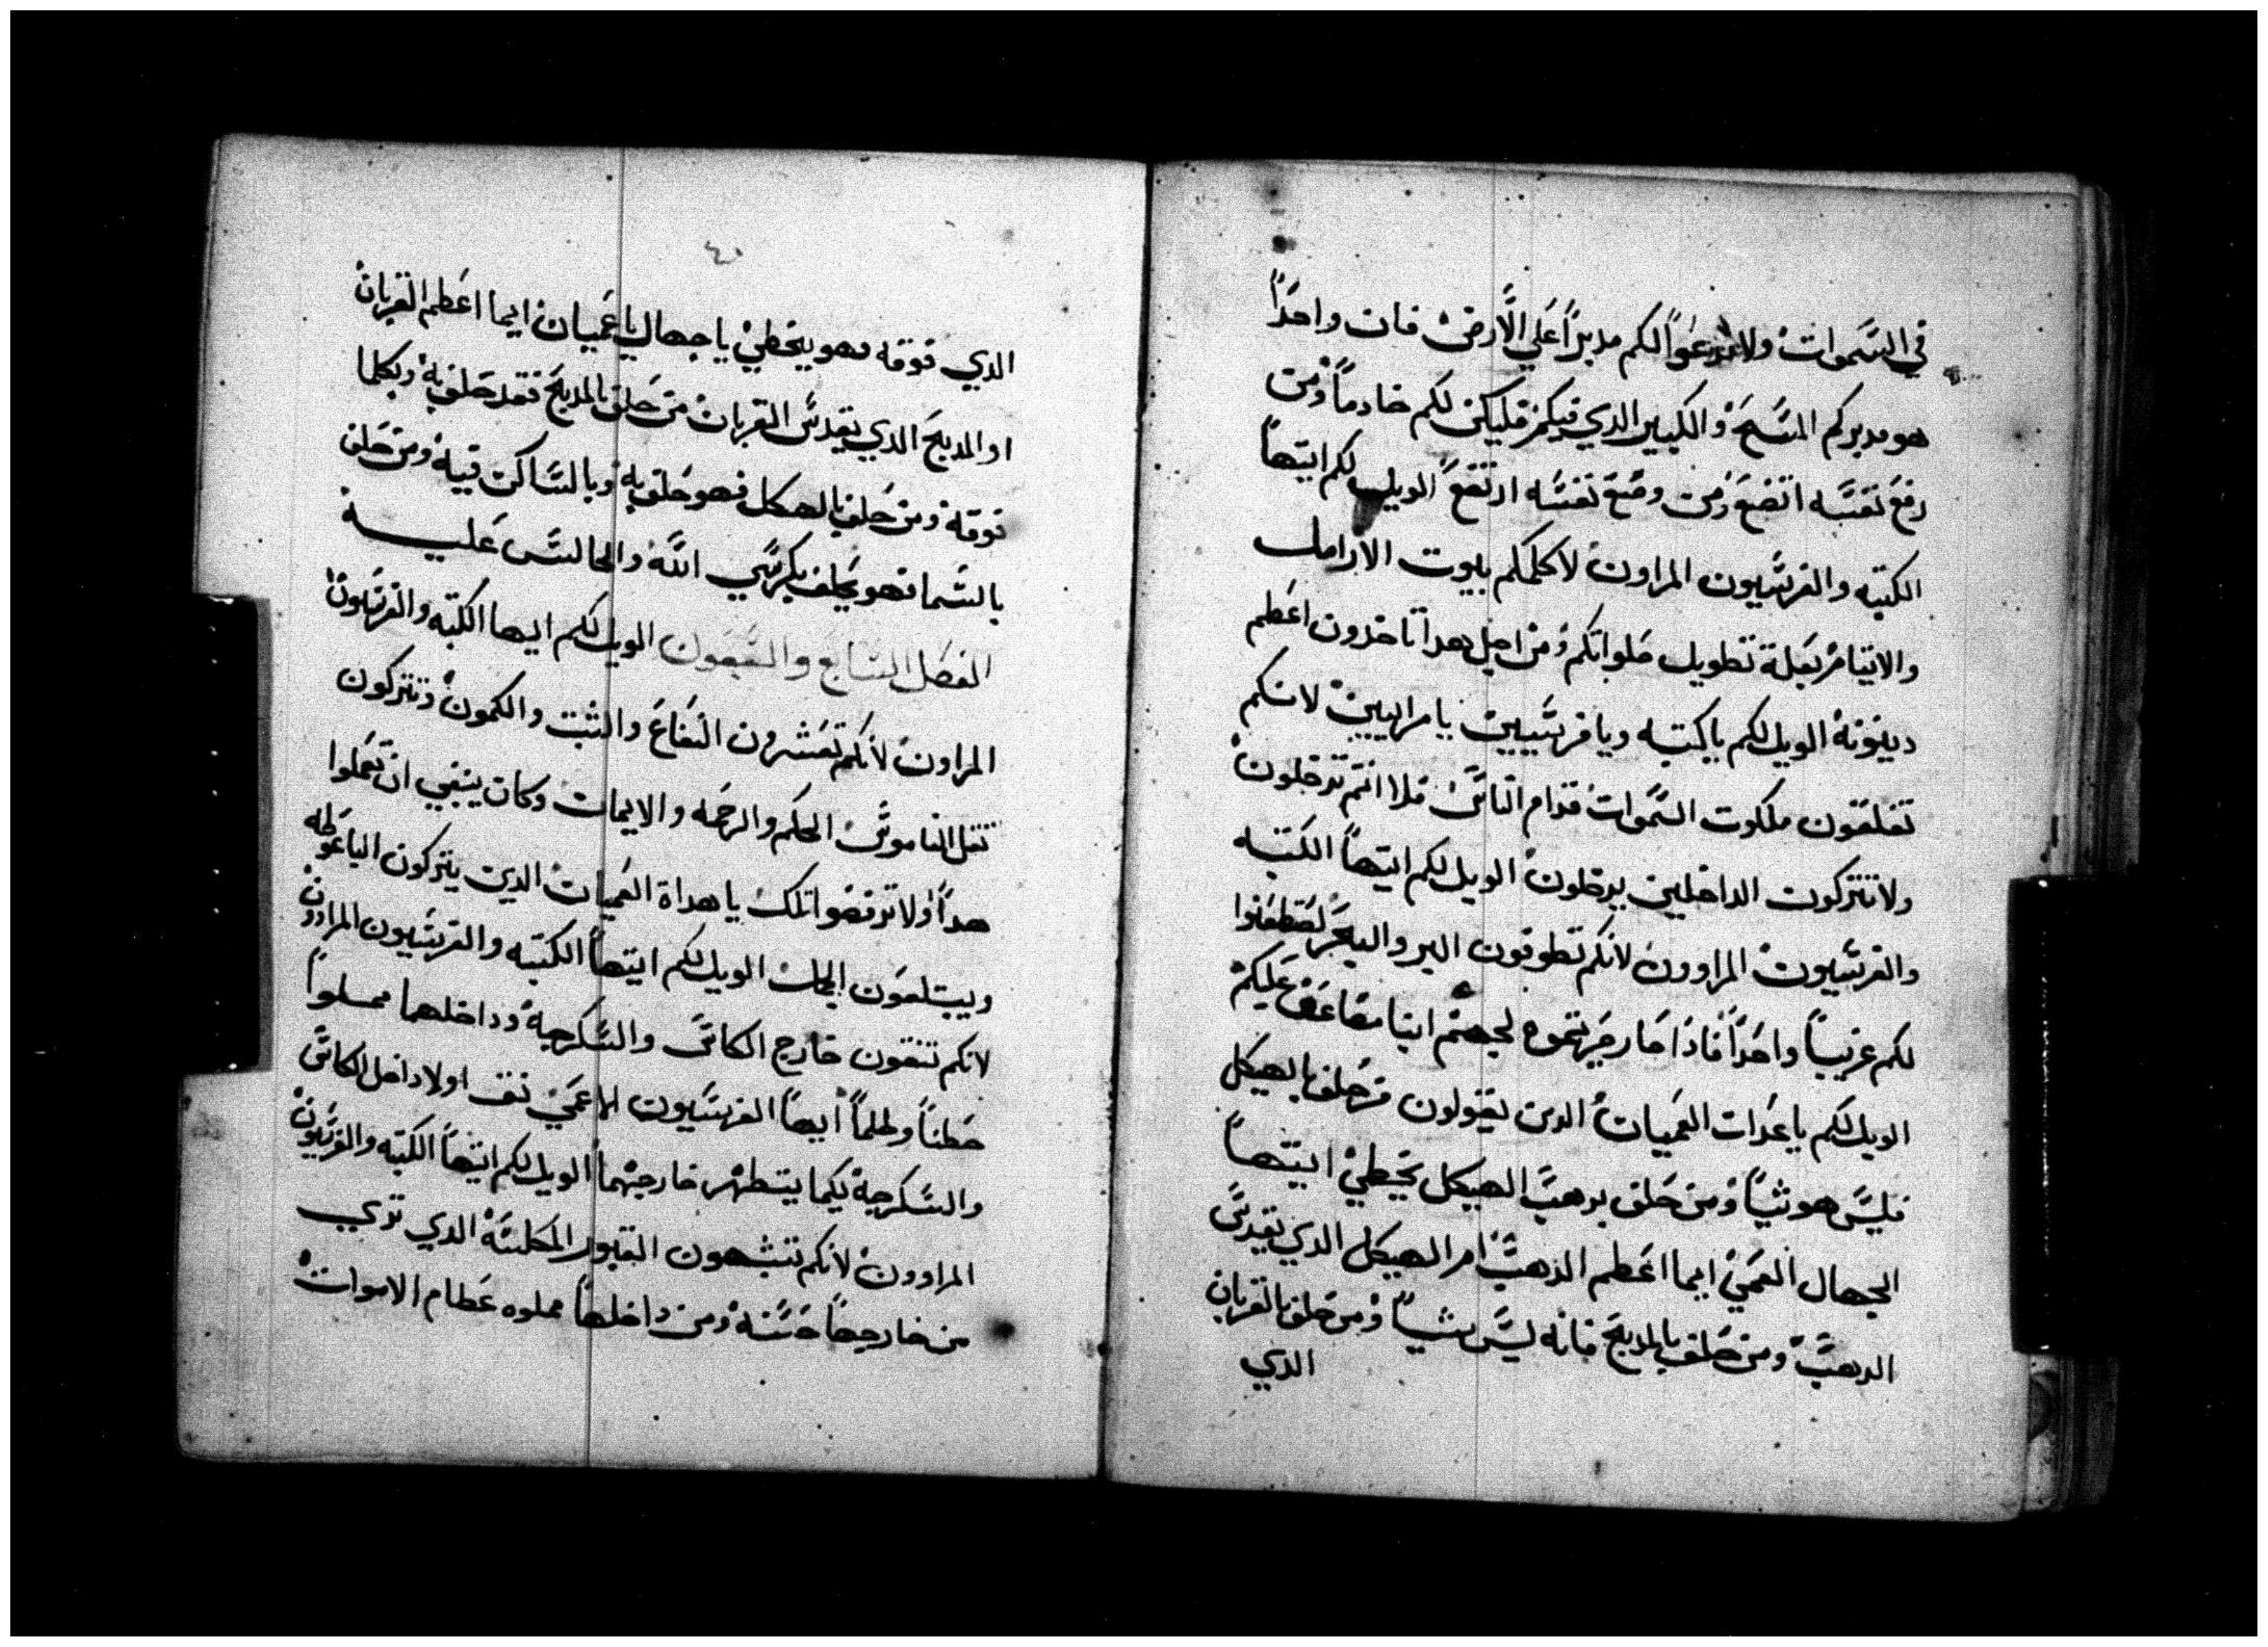 في السموات ولا تدعوا لكم مدبراً علي الأرض فان واحداً
هو مدبركم المسيح والكبير الدي فيكم فليكن لكم خادماً ومن
رفع نفسه اتضع ومن وضع نفسه ارتفع الويل لكم ايتها
الكتبه والفريسيون المراون لاكلكم بيوت الارامل
والايتام بعلة تطويل صلواتكم ومن اجل هدا تاخدون اعظم
دينونة الويل لكم ياكتبه ويا فريسيين يا مراييين لانكم
تغلقون ملكوت السموات قدام الناس فلا انتم تدخلون
ولا تتركون الداخلين يدخلون الويل لكم ايتها الكتبه
والفريسيون المراوون لانكم تطوفون البر والبحر لتصطنعوا
لكم غريباً واحداً فادا صار صيرتموه لجهنم ابنا مضاعف عليكم
الويل لكم يا هداة العميان الدين يقولون من حلف بالهيكل
فليس هو شياً ومن حلف بدهب الهيكل يخطي ايتها
الجهال العمي ايما اعظم الذهب ام الهيكل الدي يقدس
الدهب ومن حلف بالمدبح فانه ليس شياً ومن حلف بالقربان
الدي
الدي فوقه فهو يخطي يا جهال يا عميان ايما اعظم القربان
او المدبح الدي يقدس القربان من حلف بالمدبح فقد حلف به وبكلما
فوقه ومن حلف بالهيكل فهو حلف به وبالساكن فيه ومن حلف
بالسما فهو يحلف بكرسي الله والجالس عليه
الفصل السابع والسبعون الويل لكم ايها الكتبه والفريسيون
المراون لانكم تعشرون النعناع والشبت والكمون وتتركون
تقل الناموس الحكم والرحمه والايمان وكان ينبغي ان تعملوا
هدا ولا ترفضوا تلك يا هداة العميان الدين يتركون الباعوطه
ويبتلعون الجمل الويل لكم ايتها الكتبه والفريسيون المراوون
لانكم تنقون خارج الكاس والسكرجه وداخلهما مملوا
خطفاً وظلماً ايها الفريسيون الاعمي نق اولا داخل الكاس
والسكرجه لكيما يتطهر خارجهما الويل لكم ايتها الكتبه والفريسيون
المراوون لانكم تتشبهون القبور المكلسه الدي تري
من خارجها حسنه ومن داخلها مملوه عظام الاموات